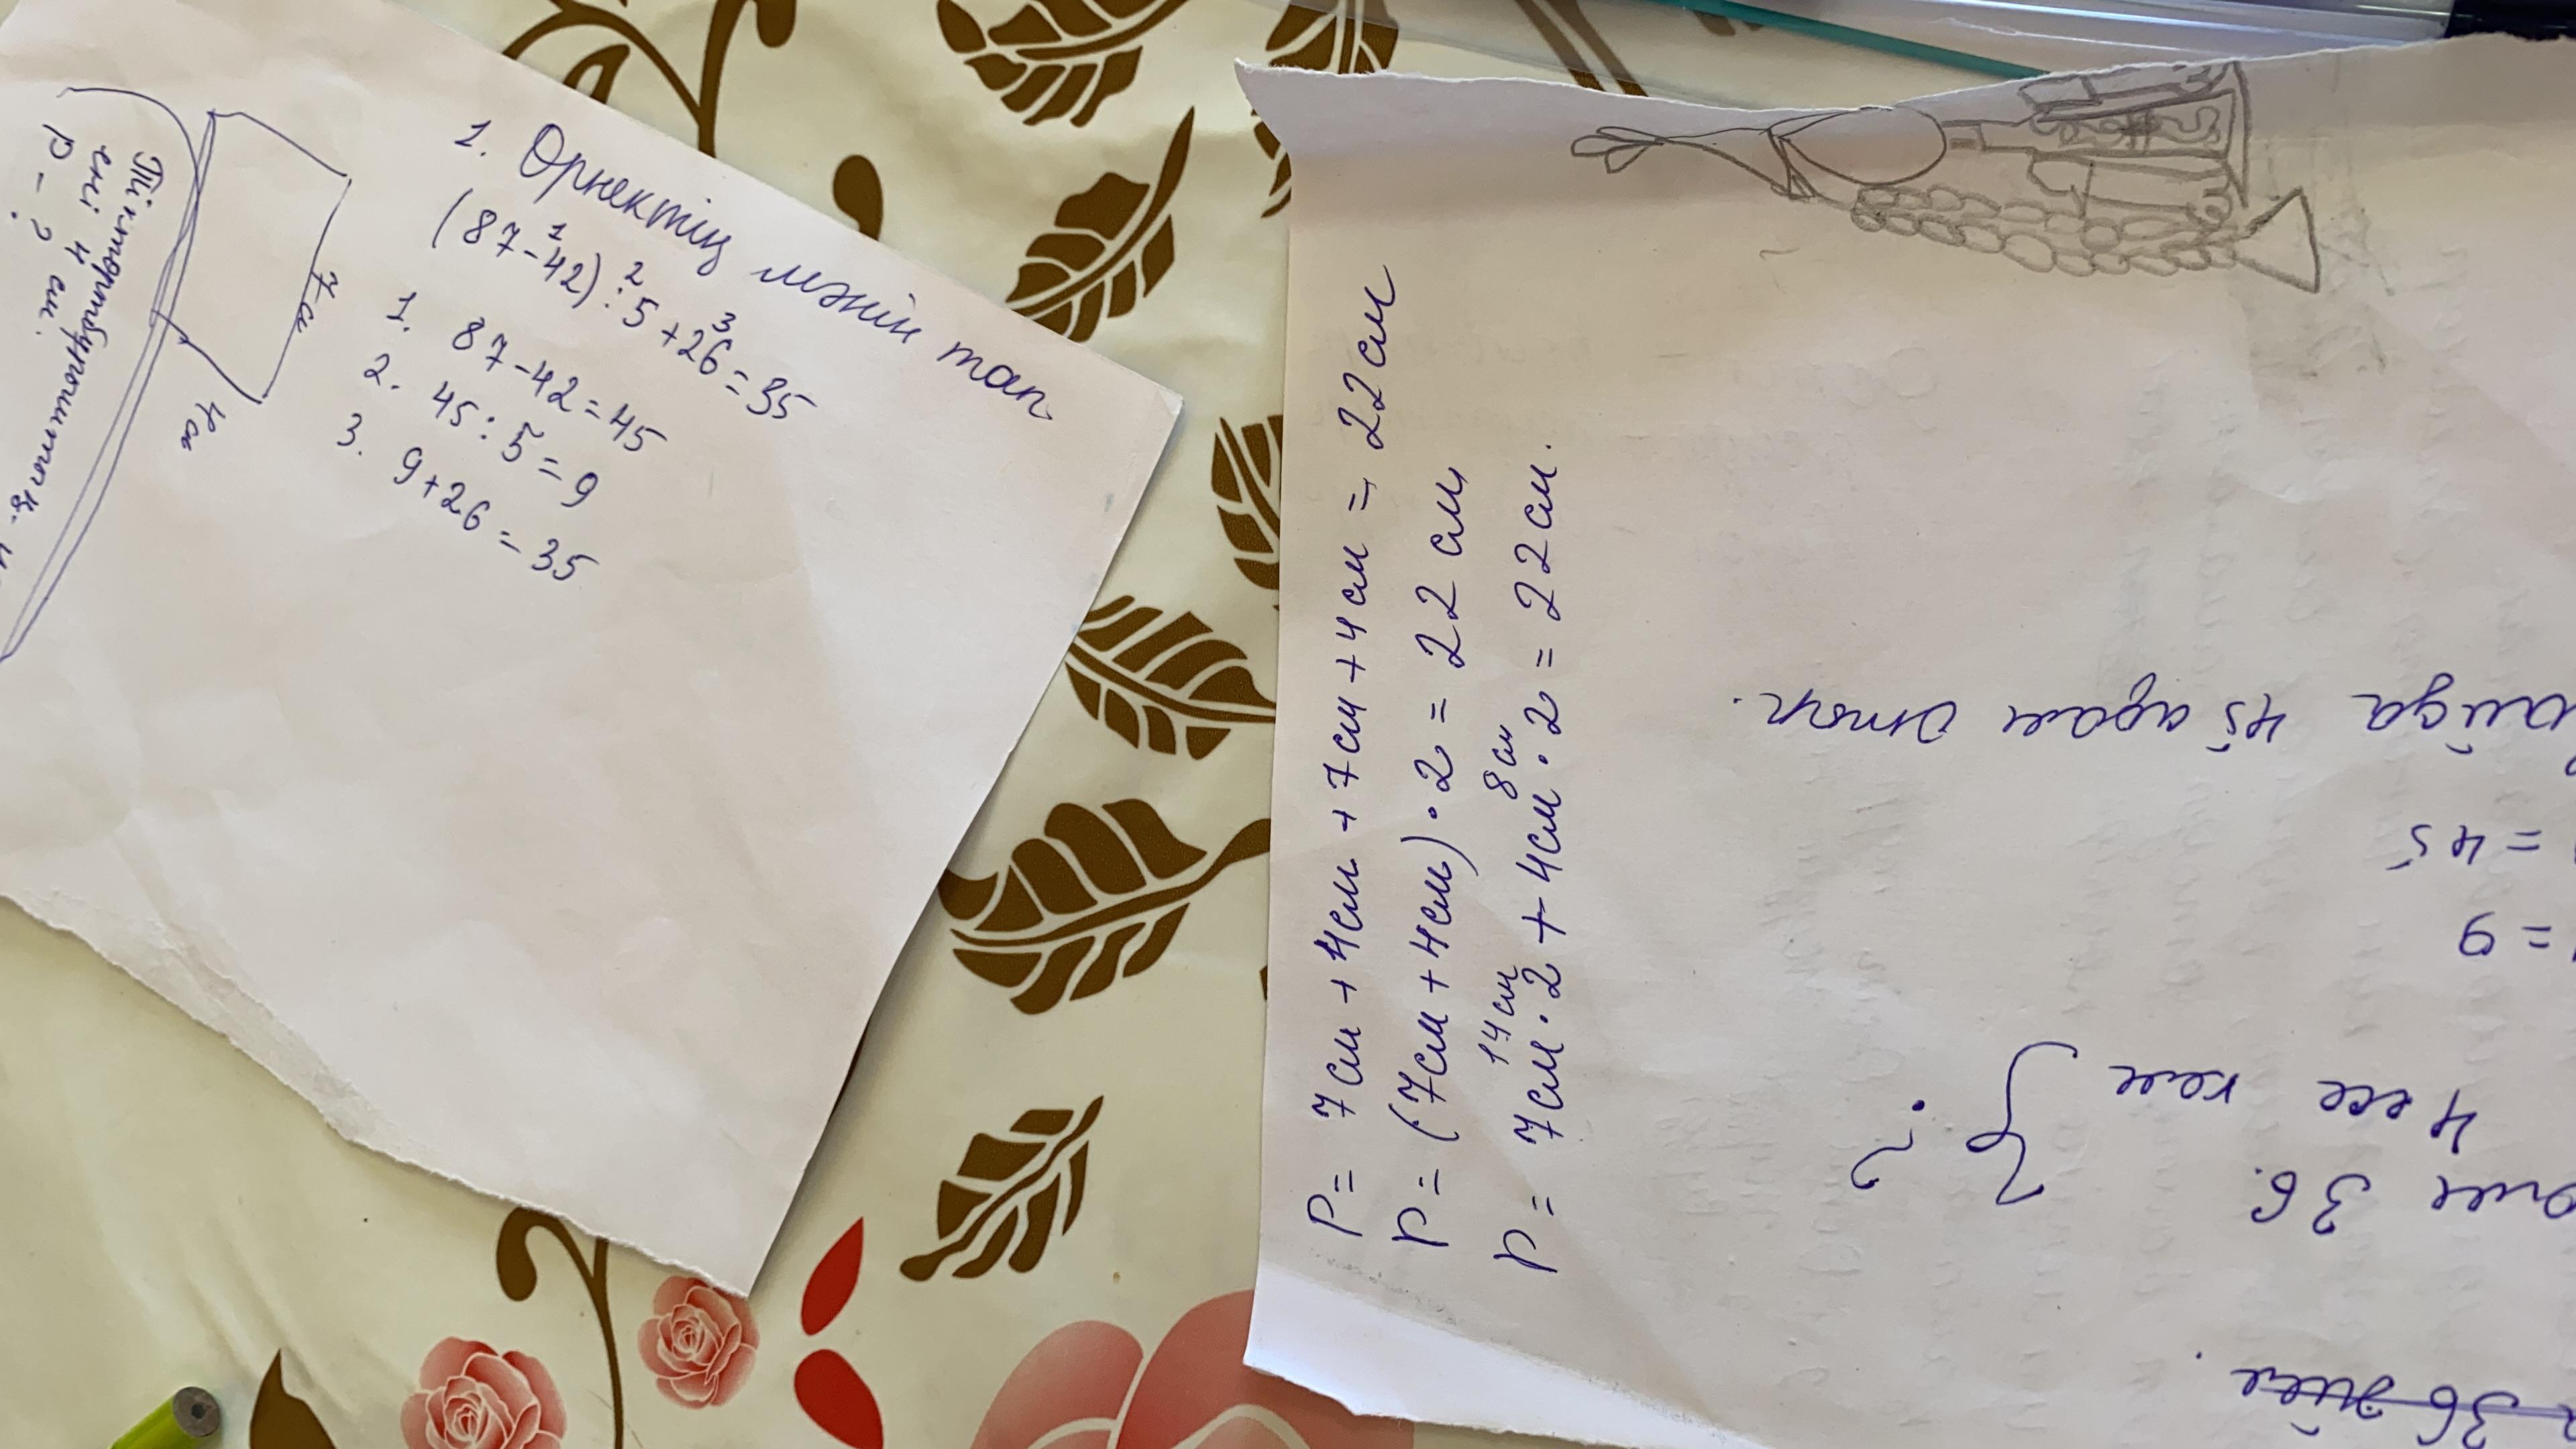 1. Өрнектің мәнін тап
(87-42):5+26=35
1 2 3
1. 87-42=45
2. 45:5=9
3. 9+26=35
7см
4см
Тіктөртбұрыштың
ені 4 см.
P-?
P= 7см+4см+7см+4см=22см
P=(7см+4см)·2=22см
14см 8см
P=7см·2+4см·2=22см.
36
36.
4 есе кем
?
=9
=45
45 адам